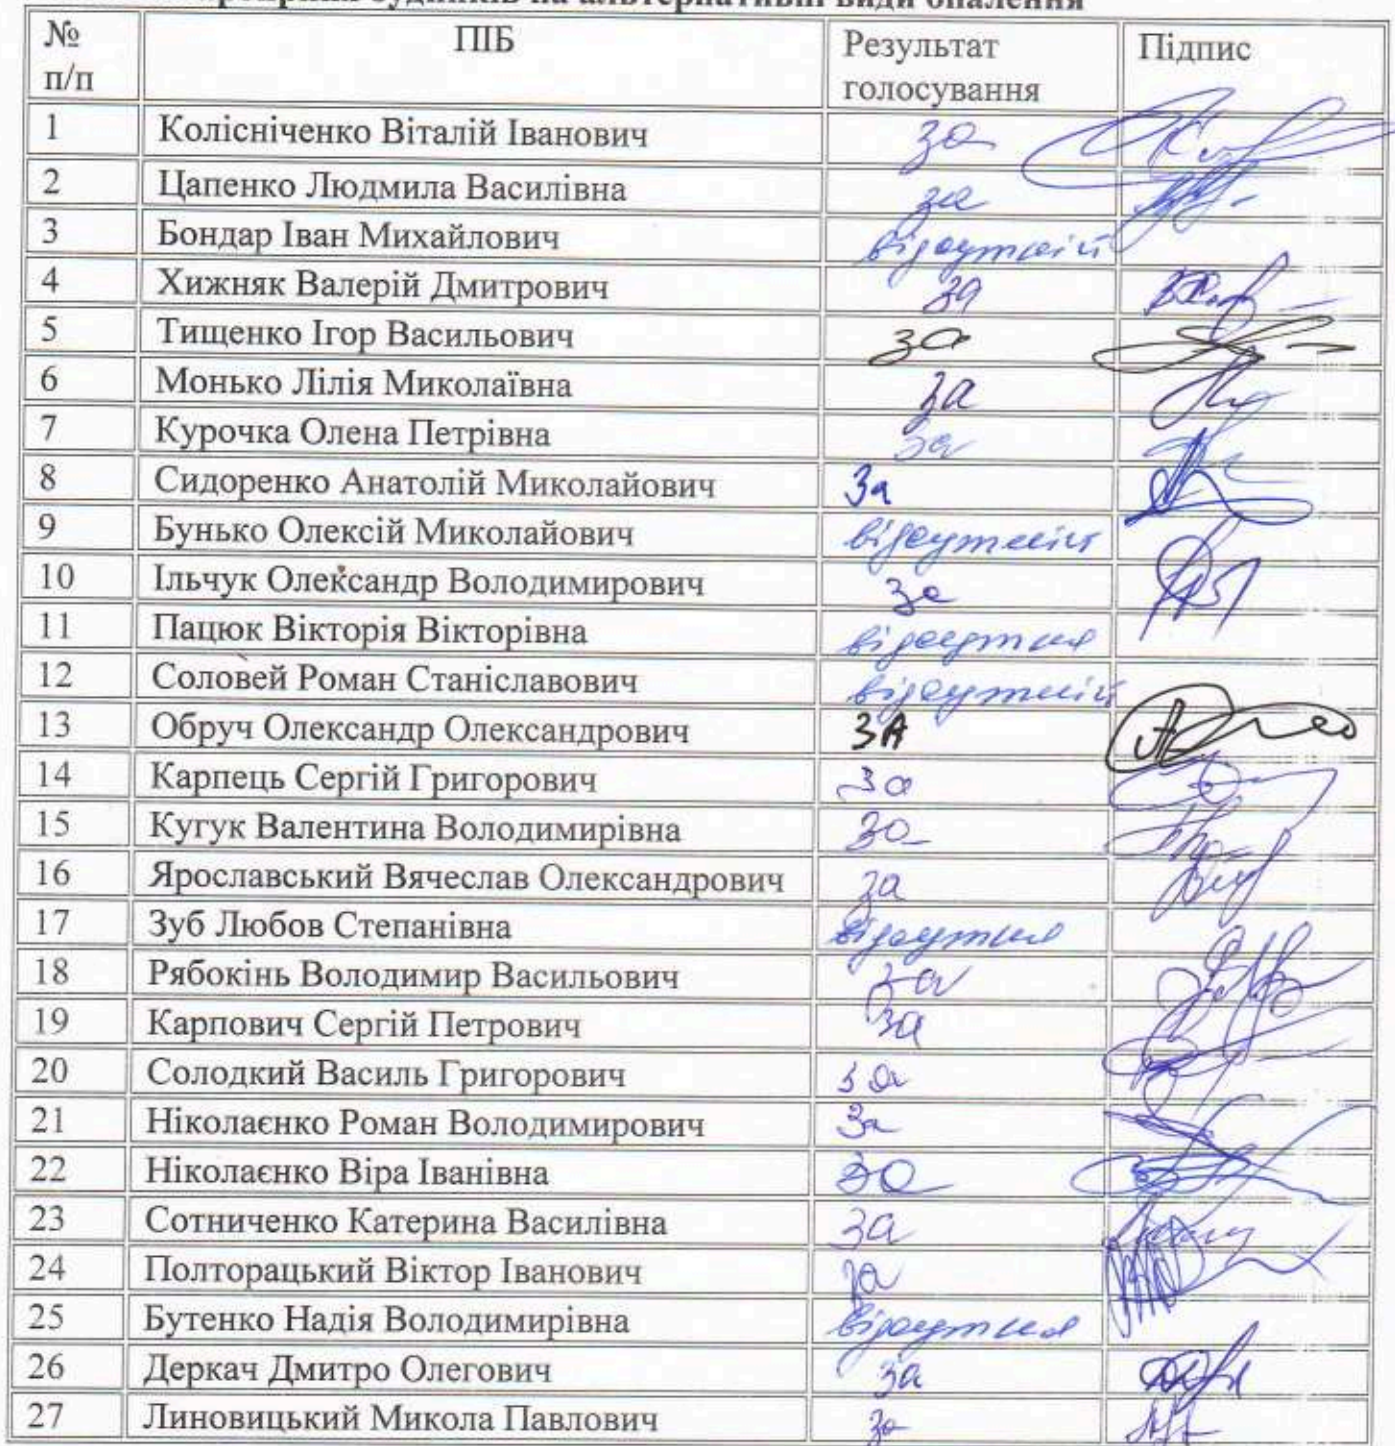 будинків на альтернативні види опалення
№ п/п ПІБ Результат голосування Підпис
1 Колісніченко Віталій Іванович за
2 Цапенко Людмила Василівна за
3 Бондар Іван Михайлович відсутній
4 Хижняк Валерій Дмитрович за
5 Тищенко Ігор Васильович за
6 Монько Лілія Миколаївна за
7 Курочка Олена Петрівна за
8 Сидоренко Анатолій Миколайович За
9 Бунько Олексій Миколайович відсутній
10 Ільчук Олександр Володимирович за
11 Пацюк Вікторія Вікторівна відсутня
12 Соловей Роман Станіславович відсутній
13 Обруч Олександр Олександрович ЗА
14 Карпець Сергій Григорович за
15 Кугук Валентина Володимирівна за
16 Ярославський Вячеслав Олександрович за
17 Зуб Любов Степанівна відсутня
18 Рябокінь Володимир Васильович за
19 Карпович Сергій Петрович за
20 Солодкий Василь Григорович за
21 Ніколаєнко Роман Володимирович За
22 Ніколаєнко Віра Іванівна за
23 Сотниченко Катерина Василівна за
24 Полторацький Віктор Іванович за
25 Бутенко Надія Володимирівна відсутня
26 Деркач Дмитро Олегович за
27 Линовицький Микола Павлович за